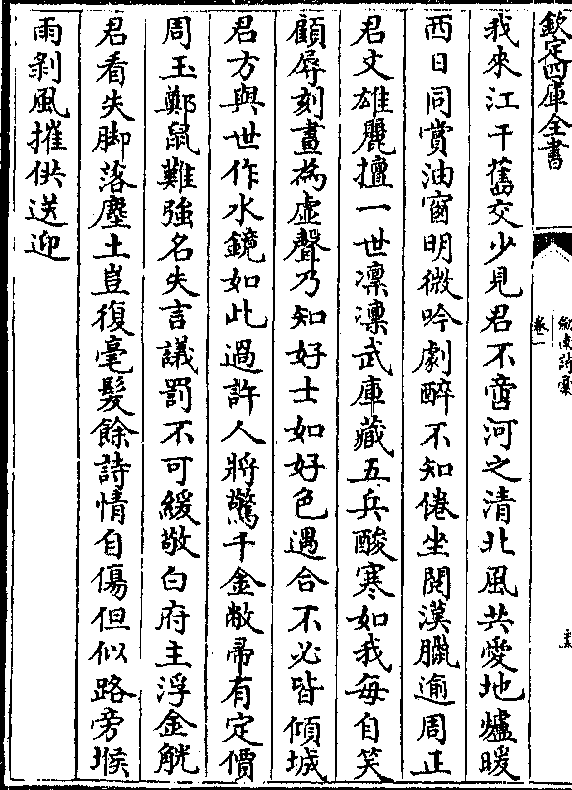 欽定四庫全書
劍南詩稾
卷一
我來江干舊交少見君不啻河之清北風共愛地爐暖
西日同賞油窗明微吟劇醉不知倦坐閱漢臘逾周正
君文雄麗擅一世凛凛武庫藏五兵酸寒如我每自笑
顧辱刻畫為虚聲乃知好士如好色遇合不必皆傾城
君方與世作水鏡如此過許人將驚千金敝帚有定價
周玉鄭鼠難強名失言議罰不可緩敬白府主浮金觥
君看失脚落塵土豈復毫髮餘詩情自傷但似路旁堠
雨剥風摧供送迎